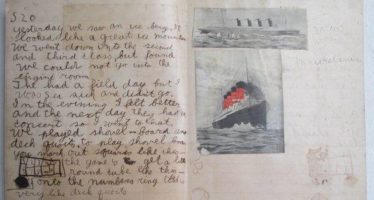 S20
yesterday we saw an ice berg. It
looked like a great ice mountain
We went down into the second
and third class but found
we could not go into the
engine room.
The had a field day but I
was sick and didnt go.
In the evening I felt better
and the next day they had a
consert so I went to that.
We played shovel-board and
deck quoits to play shovel board
you mark out squares like this
the game is get a
round tube like this
onto the numbers ring
very like deck quoits